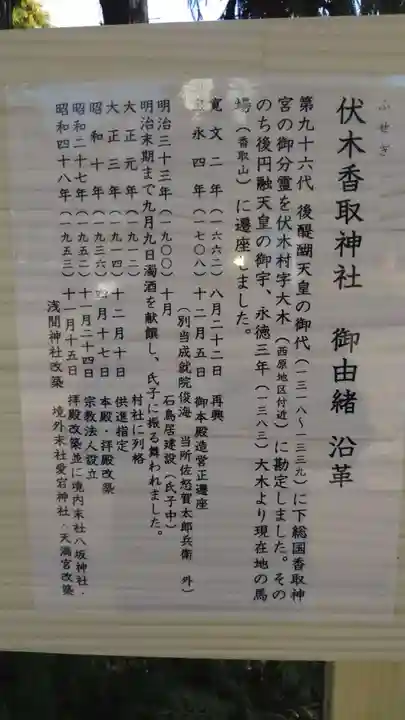 ふせぎ
伏木香取神社 御由緒 沿革
第九十六代 後醍醐天皇の御代(一三一八～一三三九)に下総国香取神
宮の御分霊を伏木村字大木(西原地区付近)に勘定しました。その
のち後円融天皇の御宇、永徳三年(一三八三)大木より現在地の馬
場(香取山)に遷座しました。
寛文二年(一六六二)八月二十二日 再興
永四年(一七〇八)十二月五日 御本殿造営正遷座
(別当成就院俊海 当所佐怒賀太郎兵衛 外)
明治三十三年(一九〇〇)十月 石鳥居建設(氏子中)
明治末期まで九月九日濁酒を献饌し、氏子に振る舞われました。
大正元年(一九一二) 村社に列格
大正三年(一九一四)十二月十日 供進指定
昭和十年(一九三六)四月十七日 本殿・拝殿改築
昭和二十七年(一九五二)十一月二十四日 宗教法人設立
昭和四十八年(一九五三)十一月十五日 拝殿改築並に境内末社八坂神社・
浅間神社改築 境外末社愛宕神社・天満宮改築